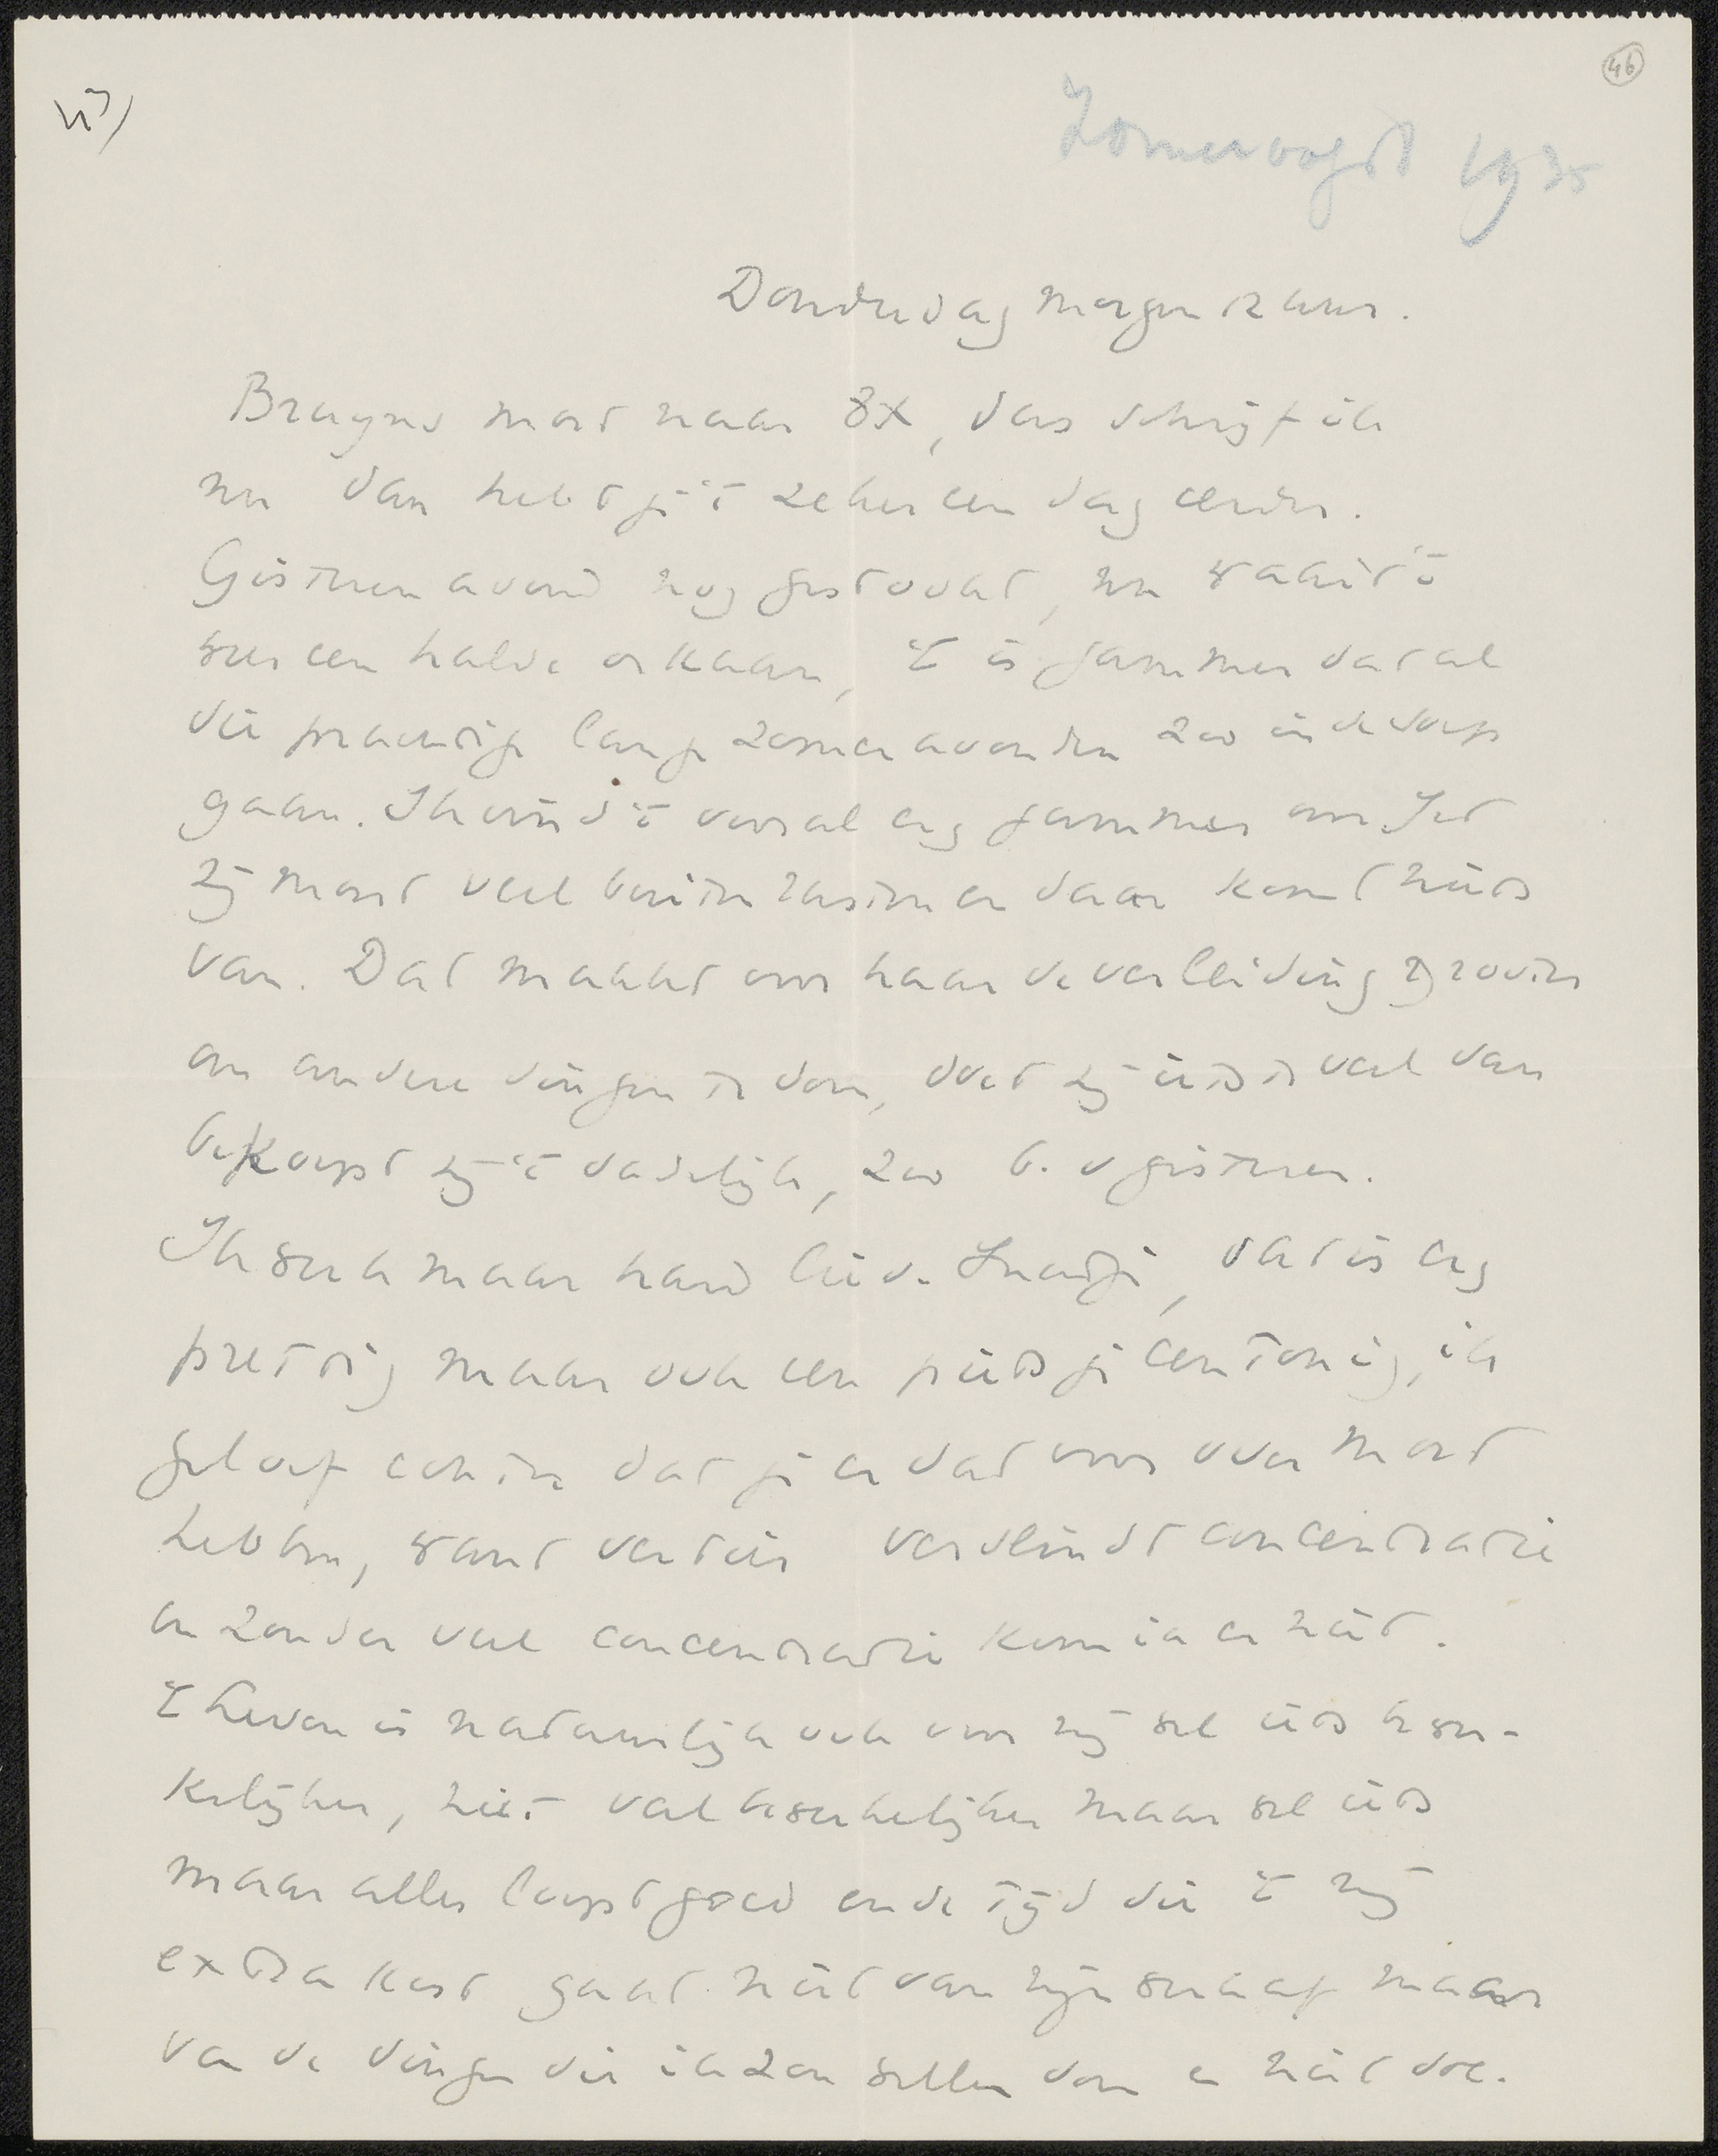 46
Zomeroogst 1935
Donderdag morgen 12 uur.
Bruynes moet naar 8x, dus schrijf ik
nu dan hebt je 't zeker een dag eerder.
Gisteren avond nog gestookt, nu waait 't
weer een halve orkaan, 't is jammer dat al
die prachtige lange zomeravonden zoo in de soep
gaan. Ik vind 't vooral erg jammer om Jet
zij moet veel buiten rusten en daar komt niets
van. Dat maakt voor haar de verleiding grooter
om andere dingen te doen, doet zij iets te veel dan
bekoopt zij 't dadelijk, zoo b.v. gisteren.
Ik werk maar hard lieve, dat is erg
prettig maar ook een pietsje eentonig, ik
geloof echter dat je er dat voor over moet
hebben, want vertier verslindt concentratie
en zonder veel concentratie kom ik er niet.
't Leven is natuurlijk ook voor mij wel iets bewer-
kelijker, niet veel bewerkelijker maar wel iets
maar alles loopt goed en de tijd die 't mij
extra kost gaat niet van mijn werk af maar
van de dingen die ik zou willen doen en niet doe.